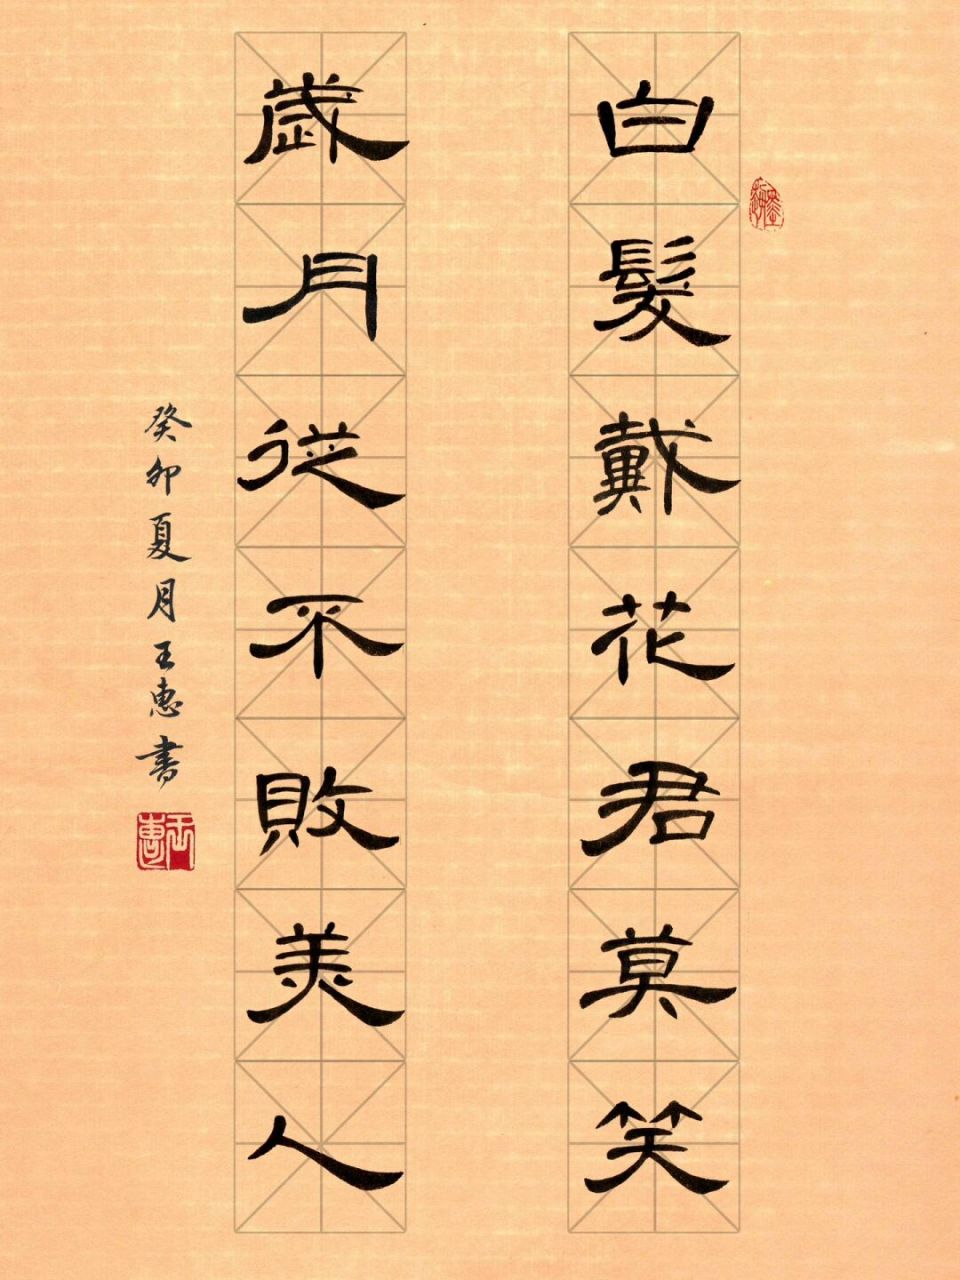 白髮戴花君莫笑
歲月從不敗美人
癸卯夏月王惠書
王惠